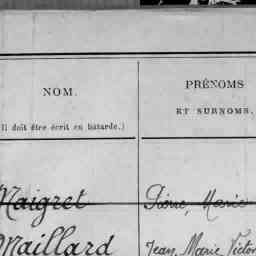 NOM.
PRÉNOMS
ET SURNOMS.
Il doit être écrit en bâtarde.)
Maigret Pierre, Marie
Maillard Jean, Marie Victor